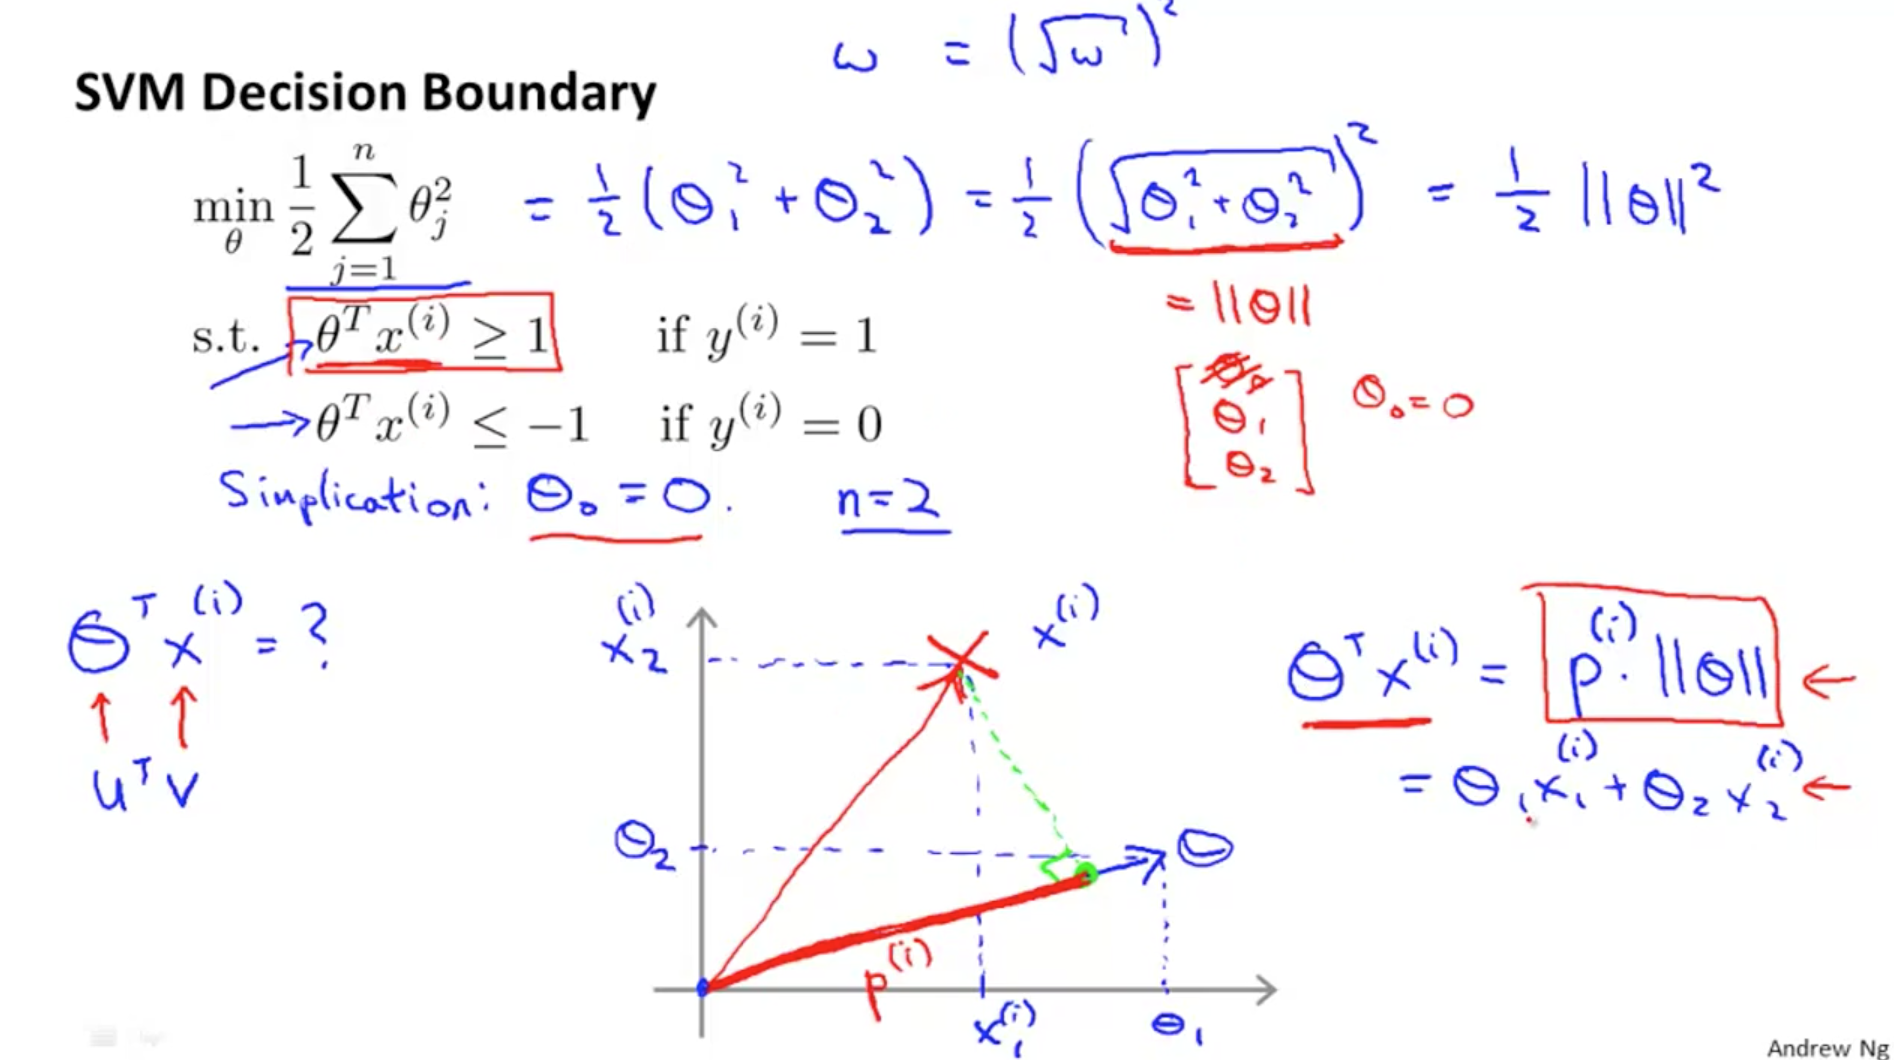 ω = (√ω)²
SVM Decision Boundary
min_θ 1/2 ∑_{j=1}^{n} θ_j² = 1/2 (θ₁² + θ₂²) = 1/2 (√(θ₁² + θ₂²))² = 1/2 ||θ||²
= ||θ||
s.t. θᵀx⁽ⁱ⁾ ≥ 1 if y⁽ⁱ⁾ = 1
[θ₀ θ₁ θ₂] θ₀ = 0
→ θᵀx⁽ⁱ⁾ ≤ −1 if y⁽ⁱ⁾ = 0
Simplication: θ₀ = 0. n = 2
θᵀx⁽ⁱ⁾ = ?
↑ ↑
uᵀv
x₂⁽ⁱ⁾
x⁽ⁱ⁾
θ₂
θ
p⁽ⁱ⁾
x₁⁽ⁱ⁾
θ₁
θᵀx⁽ⁱ⁾ = p⁽ⁱ⁾ · ||θ|| ←
= θ₁x₁⁽ⁱ⁾ + θ₂x₂⁽ⁱ⁾ ←
Andrew Ng